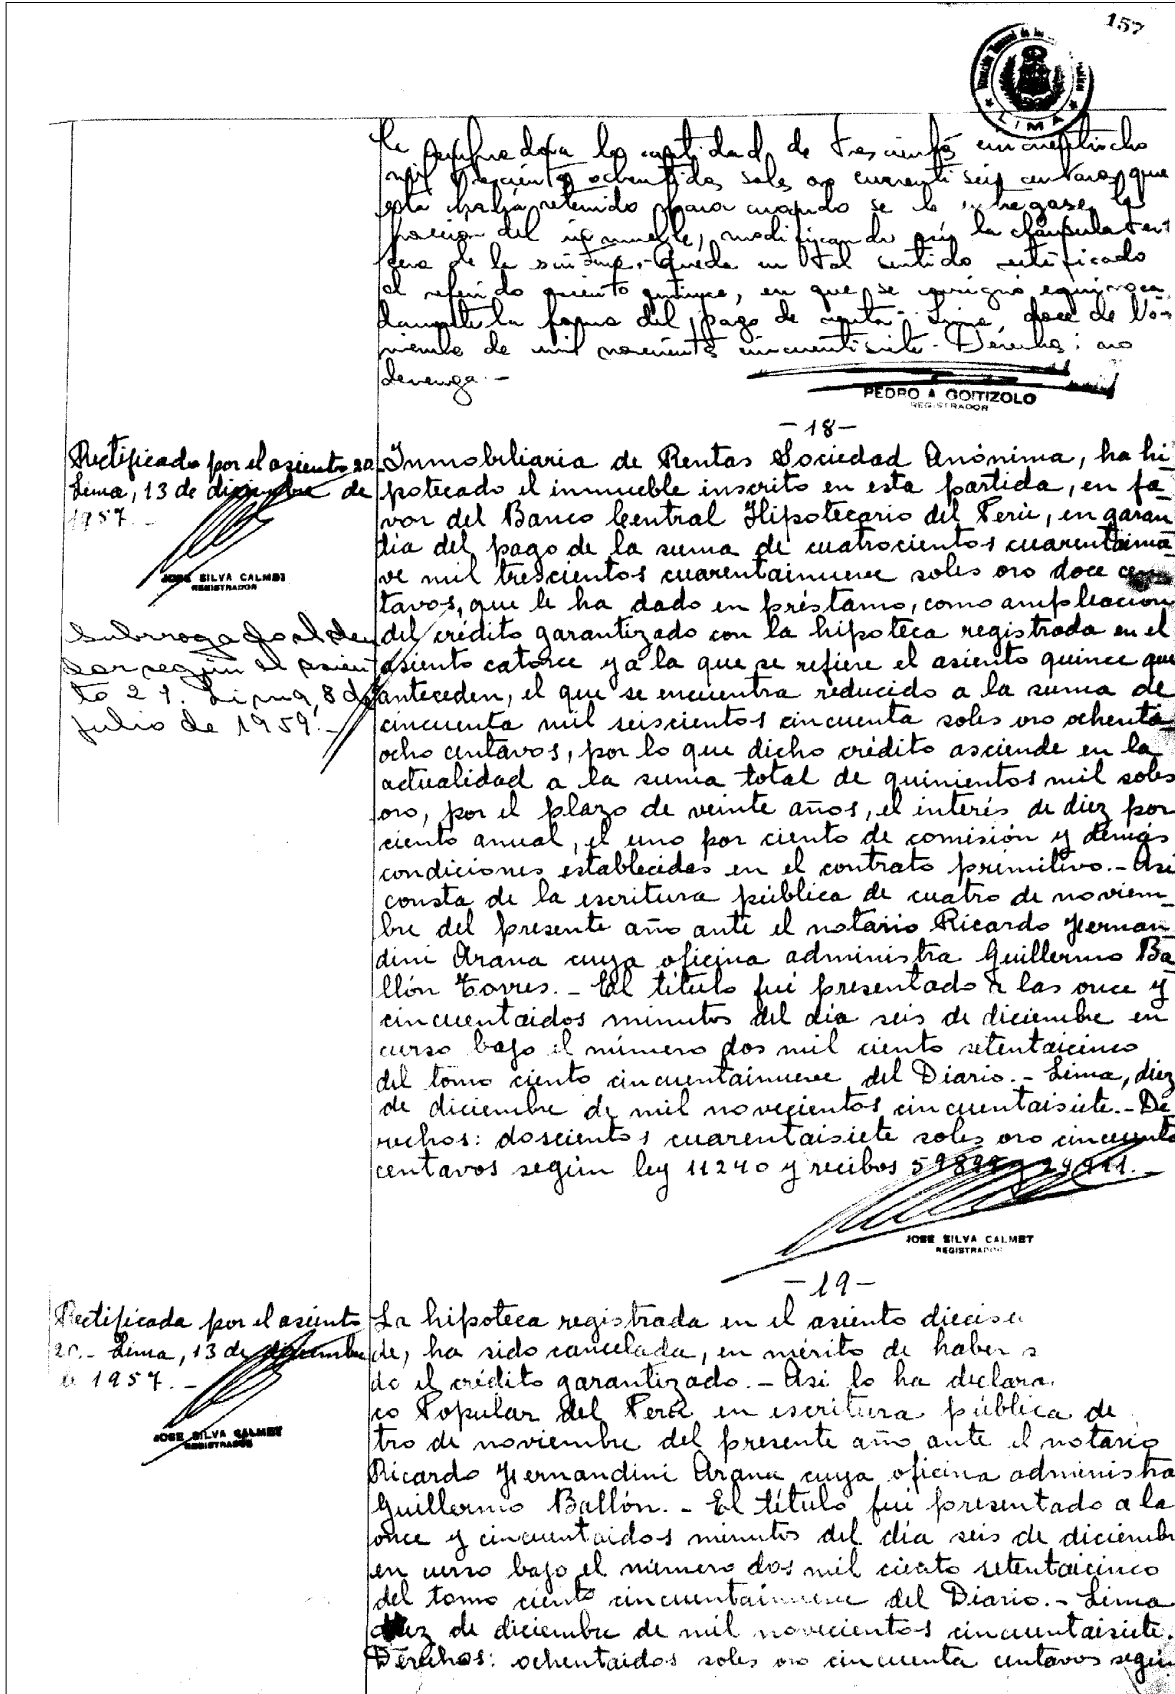 157
LIMA
la compradora la cantidad de trescientos cincuentiocho
mil trescientos ochentidos soles oro cuarenti seis centavos, que
esta había retenido para cuando se le entregase la
posesión del inmueble, modificando así la cláusula ter
cera de la misma.- Queda en tal sentido rectificado
el referido asiento quince, en que se consignó equivoca
damente la forma del pago de venta.- Lima, doce de No-
viembre de mil novecientos cincuentisiete.- Derechos: no
devenga.-
PEDRO A GOITIZOLO
REGISTRADOR
-18-
Rectificado por el asiento 20
Lima, 13 de diciembre de
1957.-
JOSE SILVA CALMET
REGISTRADOR
Subrogado al deu
sor según el asien
to 21. Lima, 8 de
julio de 1959.-
Inmobiliaria de Rentas Sociedad Anónima, ha hi
potecado el inmueble inscrito en esta partida, en fa
vor del Banco Central Hipotecario del Perú, en garan
tía del pago de la suma de cuatrocientos cuarentainue
ve mil trescientos cuarentainueve soles oro doce cen
tavos, que le ha dado en préstamo, como ampliacion
del crédito garantizado con la hipoteca registrada en el
asiento catorce y a la que se refiere el asiento quince que
anteceden, el que se encuentra reducido a la suma de
cincuenta mil seiscientos cincuenta soles oro ochenta
ocho centavos, por lo que dicho crédito asciende en la
actualidad a la suma total de quinientos mil soles
oro, por el plazo de veinte años, el interés de diez por
ciento anual, el uno por ciento de comisión y demás
condiciones establecidas en el contrato primitivo.- Asi
consta de la escritura pública de cuatro de noviem_
bre del presente año ante el notario Ricardo Hernan_
dini Arana cuya oficina administra Guillermo Ba
llón Torres.- El título fué presentado a las once y
cincuentaidos minutos del día seis de diciembre en
curso bajo el número dos mil ciento setentaicinco
del tomo ciento cincuentainueve del Diario.- Lima, diez
de diciembre de mil novecientos cincuentaisiete.- De
rechos: doscientos cuarentaisiete soles oro cincuenta
centavos según ley 11240 y recibos 59899 y 24911.-
JOSE SILVA CALMET
REGISTRADOR
-19-
Rectificada por el asiento
20.- Lima, 13 de diciembre
de 1957.-
JOSE SILVA CALMET
REGISTRADOR
La hipoteca registrada en el asiento diecise
de, ha sido cancelada, en mérito de haber s
do el crédito garantizado.- Asi lo ha declara
co Popular del Perú en escritura pública de
tro de noviembre del presente año ante el notario
Ricardo Hernandini Arana cuya oficina administra
Guillermo Ballón.- El título fué presentado a la
once y cincuentaidos minutos del día seis de diciembr
en curso bajo el número dos mil ciento setentaicinco
del tomo ciento cincuentainueve del Diario.- Lima
diez de diciembre de mil novecientos cincuentaisiete.
Derechos: ochentaidos soles oro cincuenta centavos según